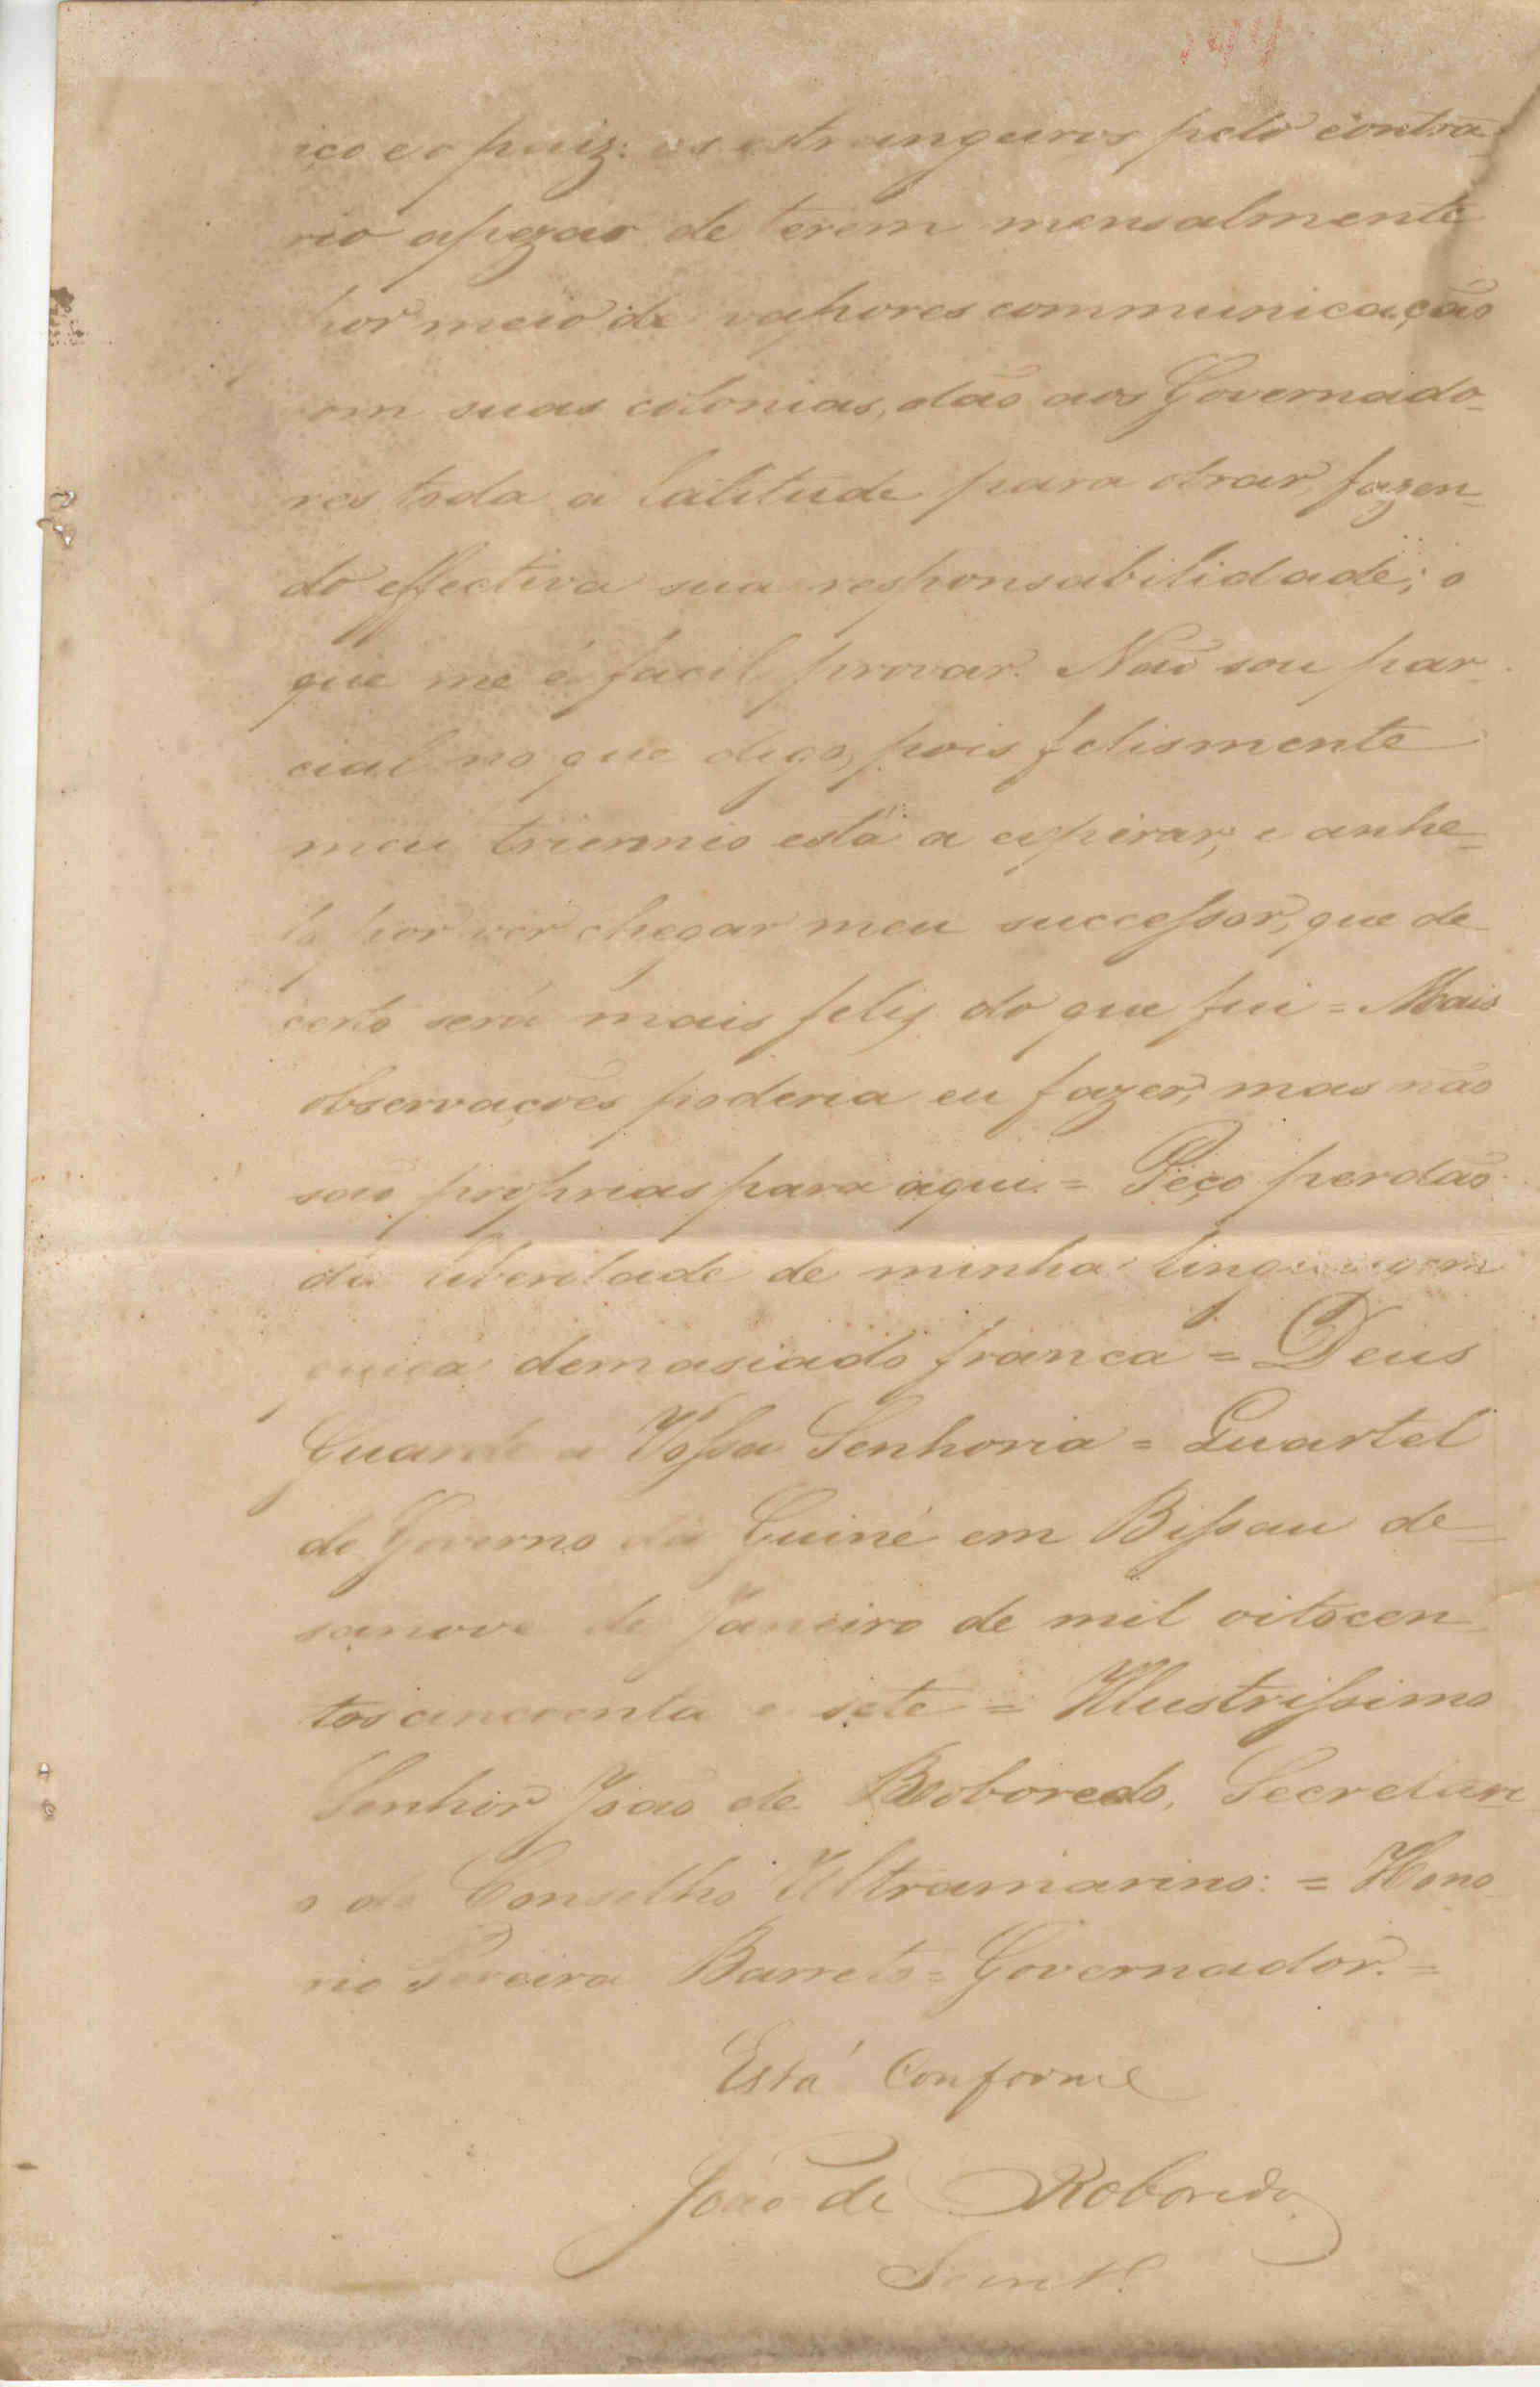 iço e o paiz: os estrangeiros pelo contra-
rio apezar de terem mensalmente
por meio de vapores communicação
com suas colonias, dão aos Governado-
res toda a latitude para obrar, fazen-
do effectiva sua responsabilidade; o
que me é facil provar. Não sou par-
cial no que digo, pois felismente
meu triennio está a expirar; e anhe-
lo por ver chegar meu successor, que de
certo será mais feliz do que fui = Mais
observações poderia eu fazer; mas não
são proprias para aqui. = Peço perdão
da liberdade de minha linguagem
demasiado franca = Deus
Guarde a Vossa Senhoria = Quartel
do Governo da Guiné em Bissau de-
sanove de Janeiro de mil oitocen-
tos cincoenta e sete = Illustrissimo
Senhor João de Roboredo, Secretari-
o do Conselho Ultramarino: = Hono-
rio Pereira Barreto = Governador. =
Está Conforme
João de Roboredo